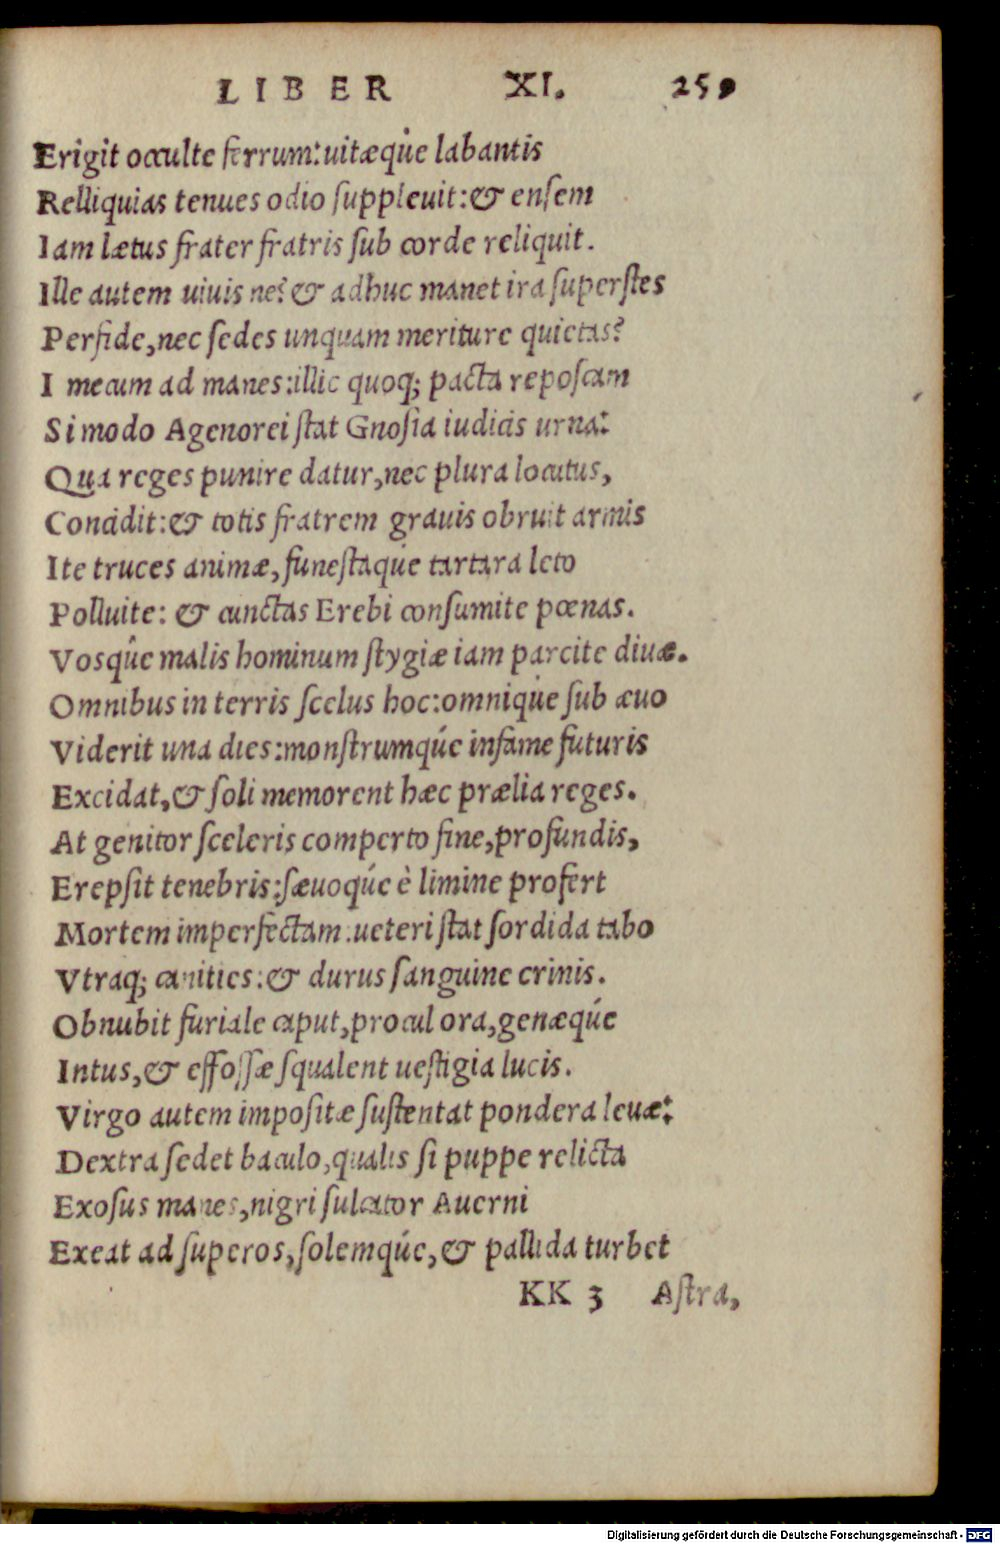 LIBER XI. 259
Erigit occulte ferrum: uitæq́ue labantis
Relliquias tenues odio suppleuit: & ensem
Iam lætus frater fratris sub corde reliquit.
Ille autem uiuis ne? & adhuc manet ira superstes
Perfide, nec sedes unquam meriture quietas?
I mecum ad manes: illic quoq; pacta reposcam
Si modo Agenorei stat Gnosia iudicis urna:
Qua reges punire datur, nec plura locutus,
Concidit: & totis fratrem grauis obruit armis
Ite truces animæ, funestaq́ue tartara leto
Polluite: & cunctas Erebi consumite pœnas.
Vosq́ue malis hominum stygiæ iam parcite diuæ.
Omnibus in terris scelus hoc: omniq́ue sub æuo
Viderit una dies: monstrumq́ue infame futuris
Excidat, & soli memorent hæc prælia reges.
At genitor sceleris comperto fine, profundis,
Erepsit tenebris: sæuoq́ue è limine profert
Mortem imperfectam. ueteri stat sordida tabo
Vtraq; canities: & durus sanguine crinis.
Obnubit furiale caput, procul ora, genæq́ue
Intus, & effossæ squalent uestigia lucis.
Virgo autem impositæ sustentat pondera leuæ:
Dextra sedet baculo, qualis si puppe relicta
Exosus manes, nigri sulcator Auerni
Exeat ad superos, solemq́ue, & pallida turbet
KK 3 Astra,
Digitalisierung gefördert durch die Deutsche Forschungsgemeinschaft - DFG